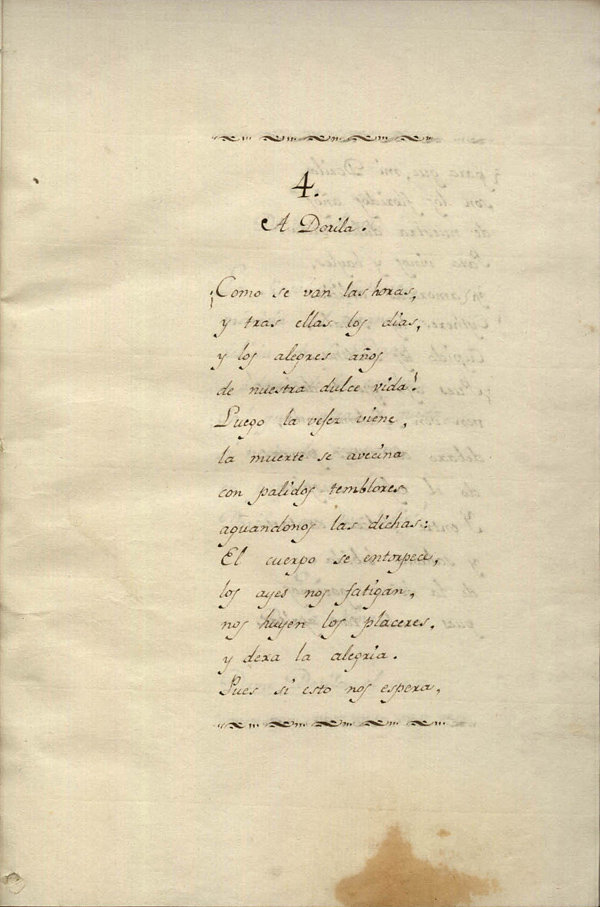 4.
A Dorila.
¡Como se van las horas,
y tras ellas los dias,
y los alegres años
de nuestra dulce vida!
Luego la vejez viene,
la muerte se avecina
con palidos temblores
aguandonos las dichas:
El cuerpo se entorpece,
los ayes nos fatigan,
nos huyen los placeres,
y dexa la alegria.
Pues si esto nos espera,